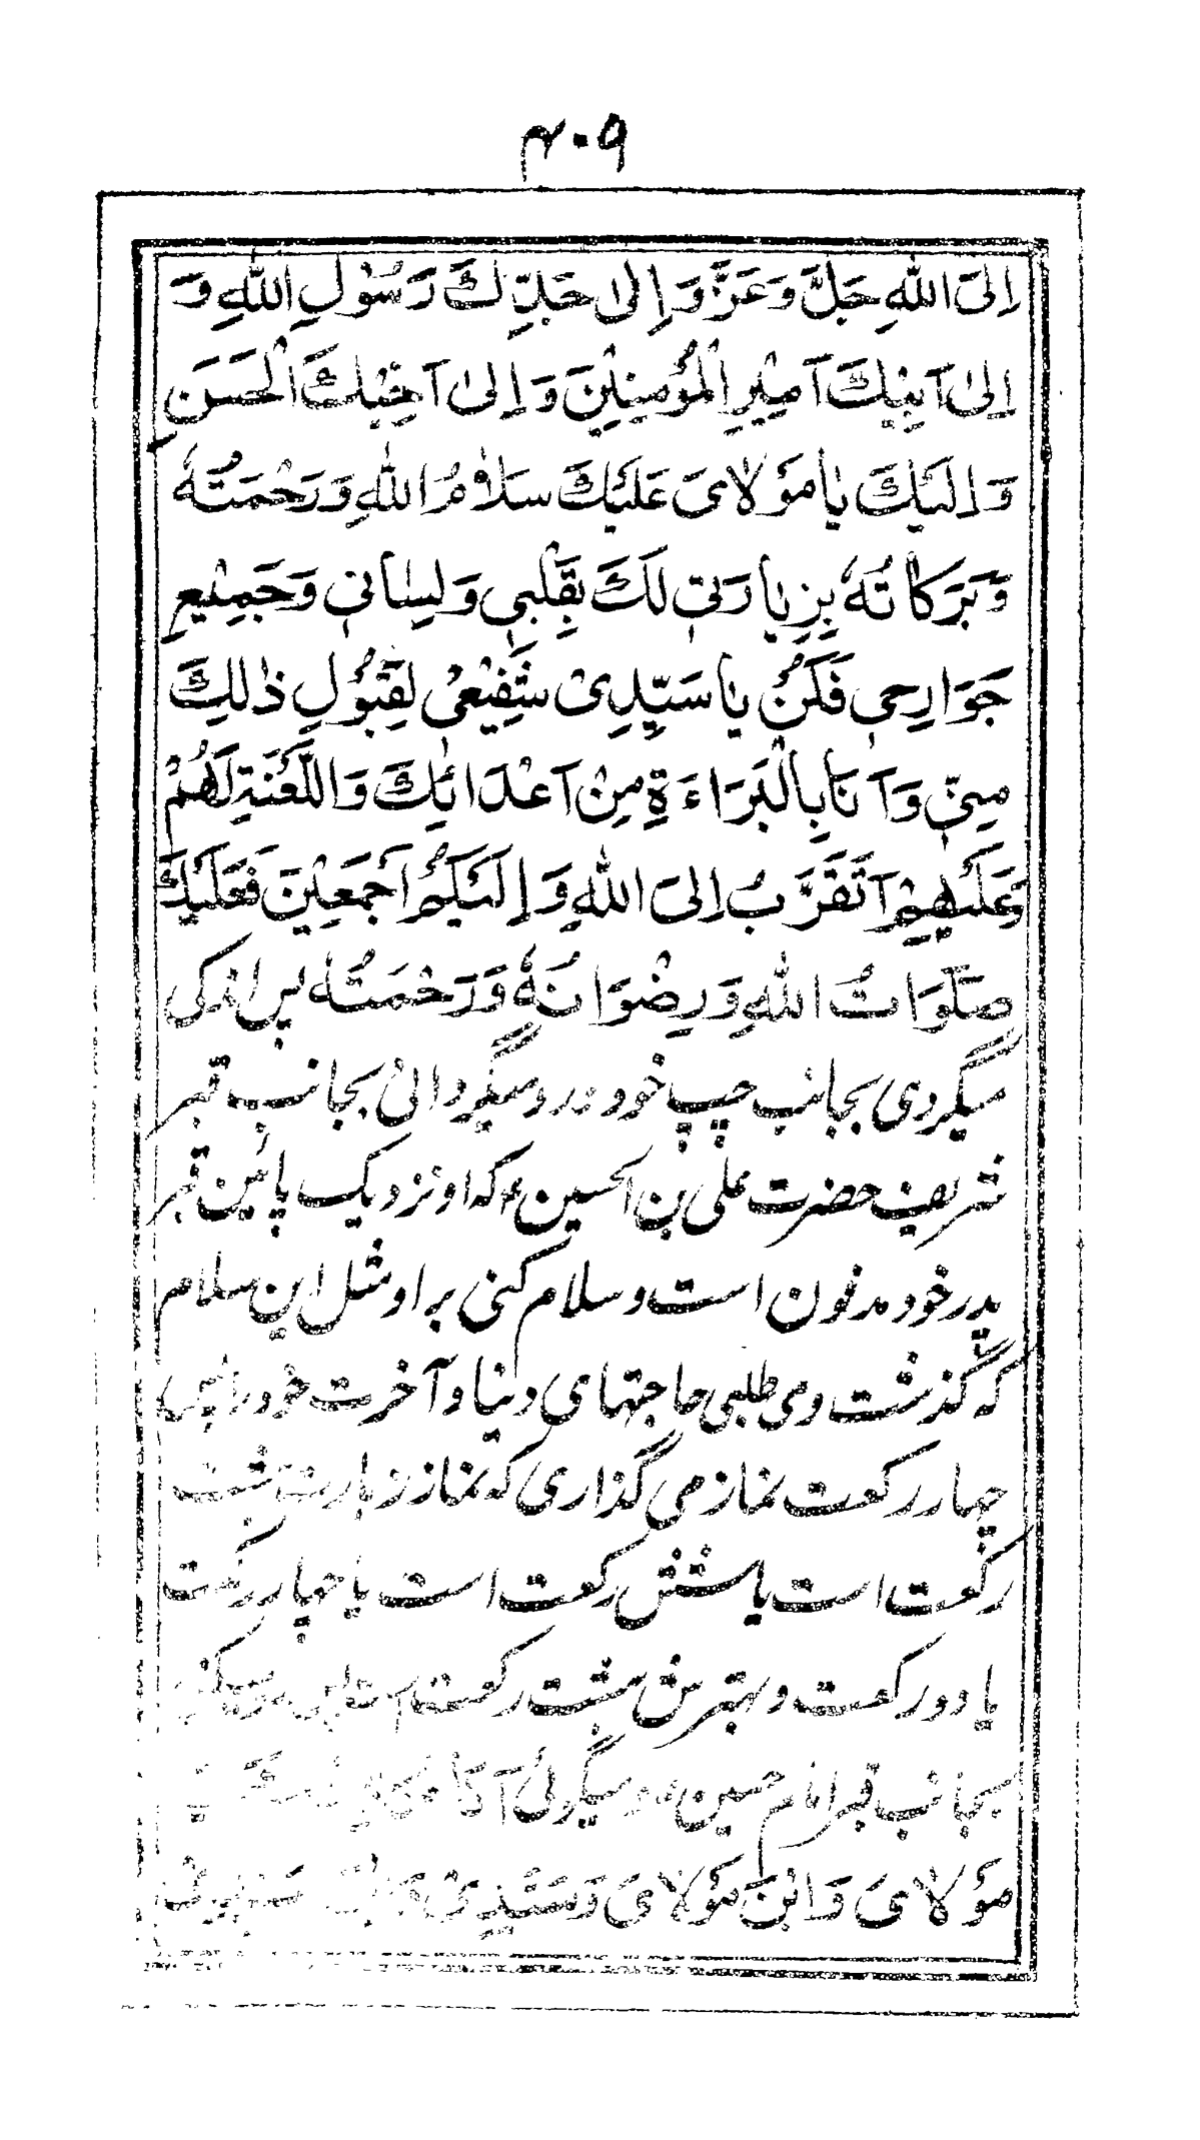 ۲۰۹
اِلَى اللهِ جَلَّ وَعَزَّ وَ اِلٰى جَدِّكَ رَسُوْلِ اللهِ وَ
اِلٰى اَبِيْكَ اَمِيْرِ الْمُؤْمِنِيْنَ وَ اِلٰى اَخِيْكَ الْحَسَنِ
وَ اِلَيْكَ يٰا مَوْلاىَ عَلَيْكَ سَلاٰمُ اللهِ وَ رَحْمَتُهُ
وَ بَرَكٰاتُهُ بِزِيٰارَتِىْ لَكَ بِقَلْبِى وَ لِسٰانِى وَ جَمِيْعِ
جَوَارِحِى فَكُنْ يٰا سَيِّدِىْ شَفِيْعِىْ لِقَبُوْلِ ذٰلِكَ
مِنِّى وَ اَنَا بِالْبَرَاءَةِ مِنْ اَعْدَائِكَ وَ اللَّعْنَةِ لَهُمْ
وَعَلَيْهِمْ اَتَقَرَّبُ اِلَى اللهِ وَ اِلَيْكُمْ اَجْمَعِيْنَ فَعَلَيْكَ
صَلَوَاتُ اللهِ وَ رِضْوَانُهُ وَ رَحْمَتُهُ پس اندکی
میگردی بجانب چپ خود و رو میگردانی بجانب قبر
شریف حضرت علی بن الحسین ع که او نزدیک پائین قبر
پدر خود مدفون است و سلام کنی بر او مثل این سلام
که گذشت و می طلبی حاجتهای دنیا و آخرت خود را پس
چهار رکعت نماز می گذاری که نماز زیارت هشت
رکعت است یا شش رکعت است یا چهار رکعت
یا دو رکعت و بهترش هشت رکعت است پس رو میکنی
بجانب قبر امام حسین ع و میگوئی اَنَا
مَوْلاىَ وَ ابْنَ مَوْلاىَ وَ سَيِّدِىْ